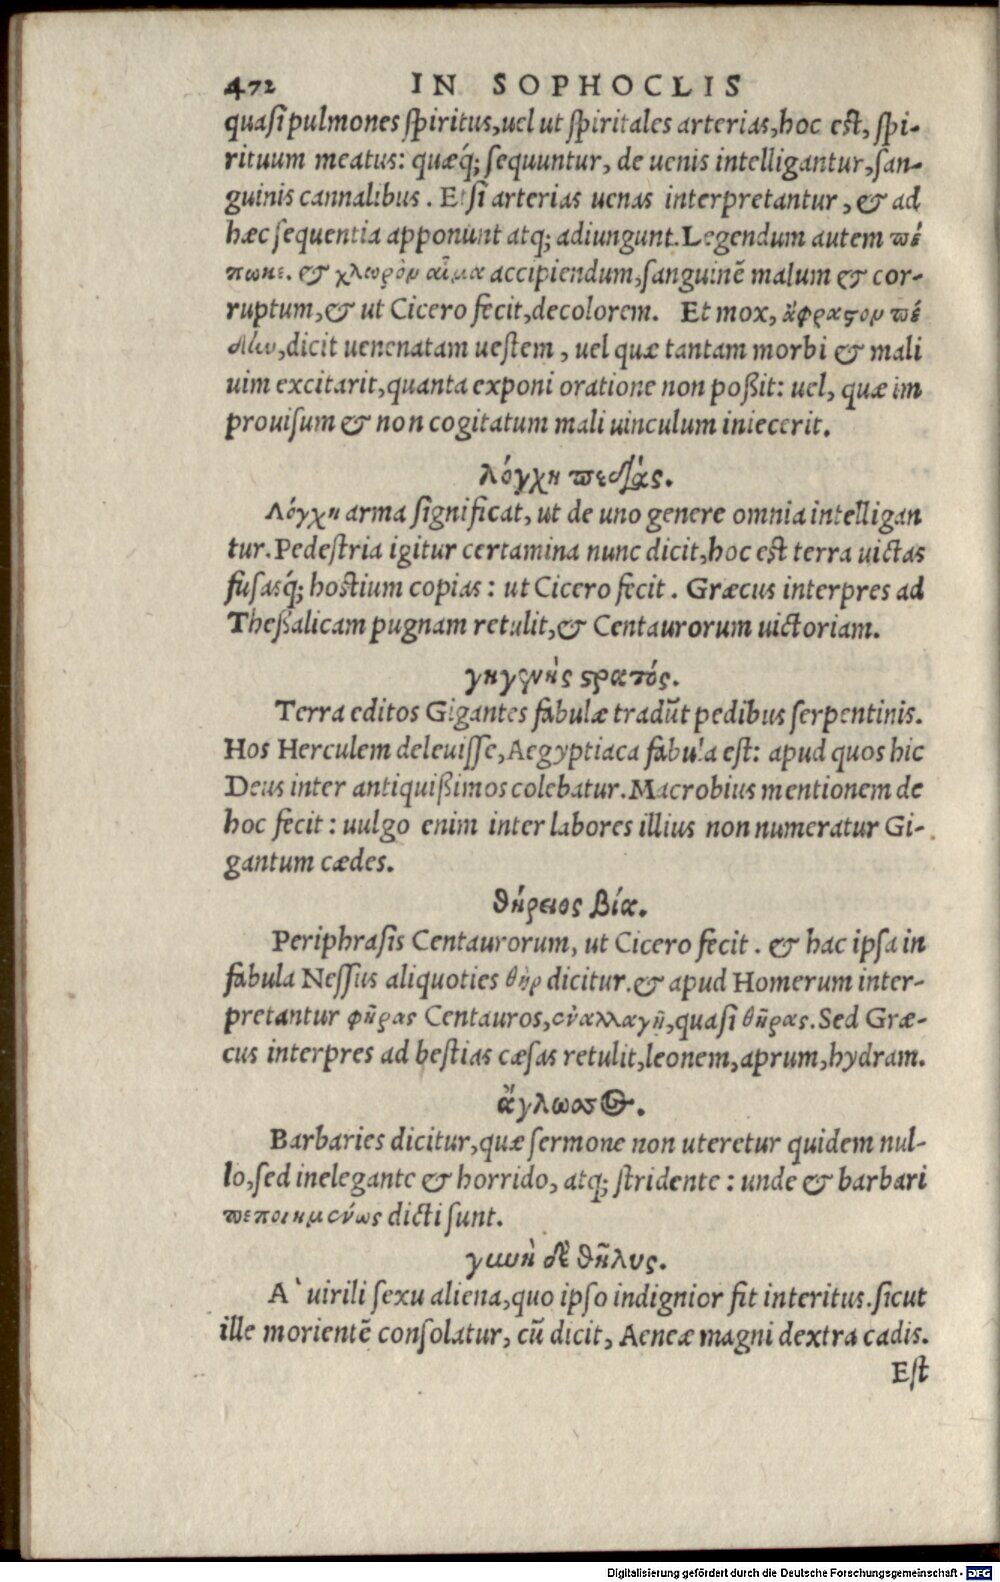 472 IN SOPHOCLIS
quasi pulmones spiritus, uel ut spiritales arterias, hoc est, spi-
rituum meatus: quæq́; sequuntur, de uenis intelligantur, san-
guinis cannalibus. Et si arterias uenas interpretantur, & ad
hæc sequentia apponunt atq; adiungunt. Legendum autem πέ
πωκε. & χλωρὸν αἷμα accipiendum, sanguinē malum & cor-
ruptum, & ut Cicero fecit, decolorem. Et mox, ἄφραστον πέ
δίω, dicit uenenatam uestem, uel quæ tantam morbi & mali
uim excitarit, quanta exponi oratione non poßit: uel, quæ im
prouisum & non cogitatum mali uinculum iniecerit.
λόγχη πεδιὰς.
Λόγχη arma significat, ut de uno genere omnia intelligan
tur. Pedestria igitur certamina nunc dicit, hoc est terra uictas
fusasq́; hostium copias: ut Cicero fecit. Græcus interpres ad
Theßalicam pugnam retulit, & Centaurorum uictoriam.
γηγενὴς στρατός.
Terra editos Gigantes fabulæ tradūt pedibus serpentinis.
Hos Herculem deleuisse, Aegyptiaca fabula est: apud quos hic
Deus inter antiquißimos colebatur. Macrobius mentionem de
hoc fecit: uulgo enim inter labores illius non numeratur Gi-
gantum cædes.
θήρειος βία.
Periphrasis Centaurorum, ut Cicero fecit. & hac ipsa in
fabula Nessus aliquoties θὴρ dicitur. & apud Homerum inter-
pretantur φῆρας Centauros, ἐναλλαγῇ, quasi θῆρας. Sed Græ-
cus interpres ad bestias cæsas retulit, leonem, aprum, hydram.
ἄγλωσσος.
Barbaries dicitur, quæ sermone non uteretur quidem nul-
lo, sed inelegante & horrido, atq; stridente: unde & barbari
πεποιημένως dicti sunt.
γυνὴ δὲ θῆλυς.
A` uirili sexu aliena, quo ipso indignior fit interitus. sicut
ille morientē consolatur, cū dicit, Aeneæ magni dextra cadis.
Est
Digitalisierung gefördert durch die Deutsche Forschungsgemeinschaft - DFG